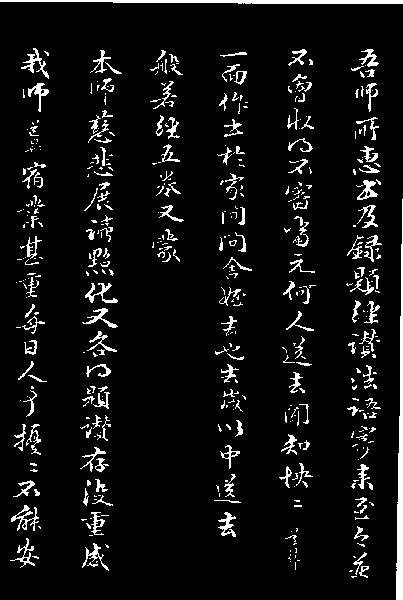 吾師所惠書及錄題經讚法語寄來至今並
不曾收得不審當元何人送去聞知怏〻
一面作書於家間問舍姪去也去歲以中送去
般若經五卷又蒙
本師慈悲展讀點化又各得題讚存沒重感
我師宿業甚重每日人事擾〻不能安